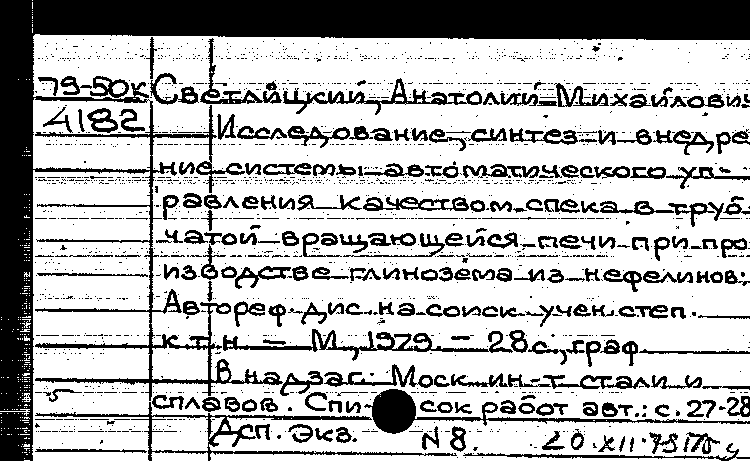 79-50к Светлицкий, Анатолий Михайлович
4182 Исследование, синтез и внедре
ние системы автоматического уп-
равления качеством спека в труб-
чатой вращающейся печи при про
изводстве глинозема из нефелинов:
Автореф. дис. на соиск. учен. степ.
к.т.н. — М., 1979. — 28 с., граф
В надзаг.: Моск. ин-т стали и
сплавов. Спи- сок работ авт.: с. 27-28
Дсп. Экз. N 8. 20.XII.79